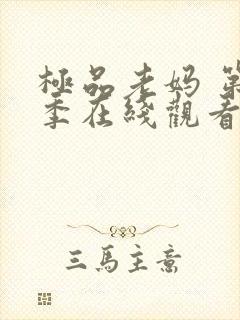 極品老妈 第
季在綫觀看
三馬主意